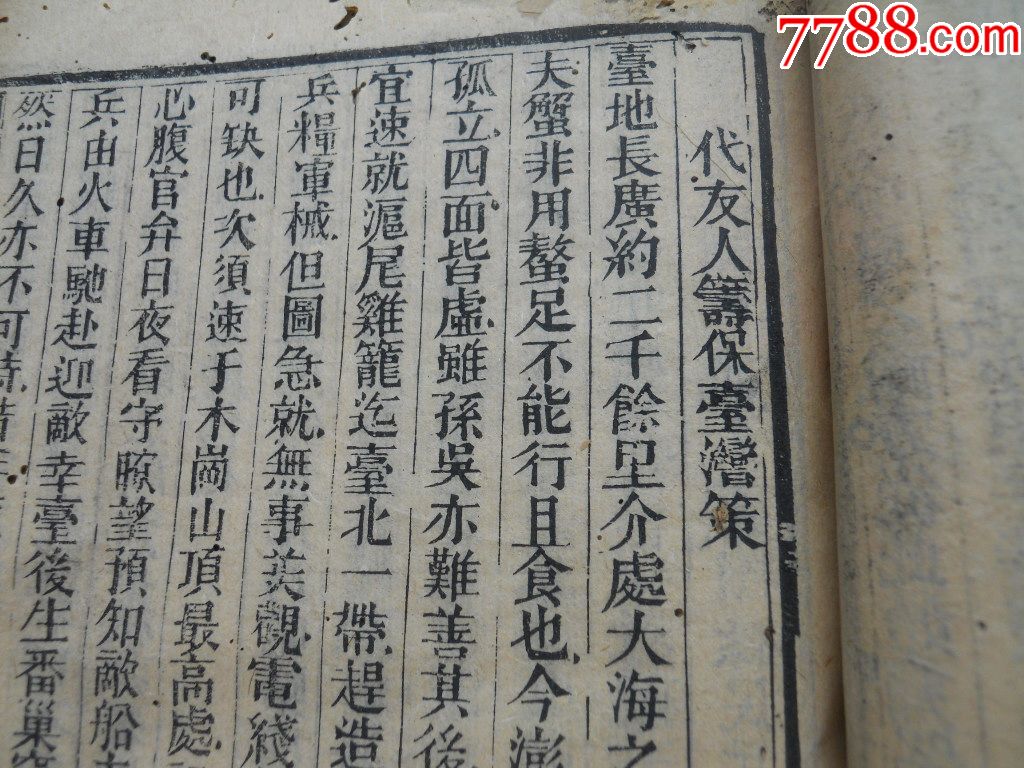 7788.com
代友人籌保臺灣策
臺地長廣約二千餘里介處大海之
夫蟹非用螯足不能行且食也今澎
孤立四面皆虛雖孫吳亦難善其後
宜速就滬尾雞籠迄臺北一帶趕造
兵糧軍械但圖急就無事美觀電綫
可缺也次須速于木崗山頂最高處
心腹官弁日夜看守瞭望預知敵船
兵由火車馳赴迎敵幸臺後生番巢
然日久亦不可恃